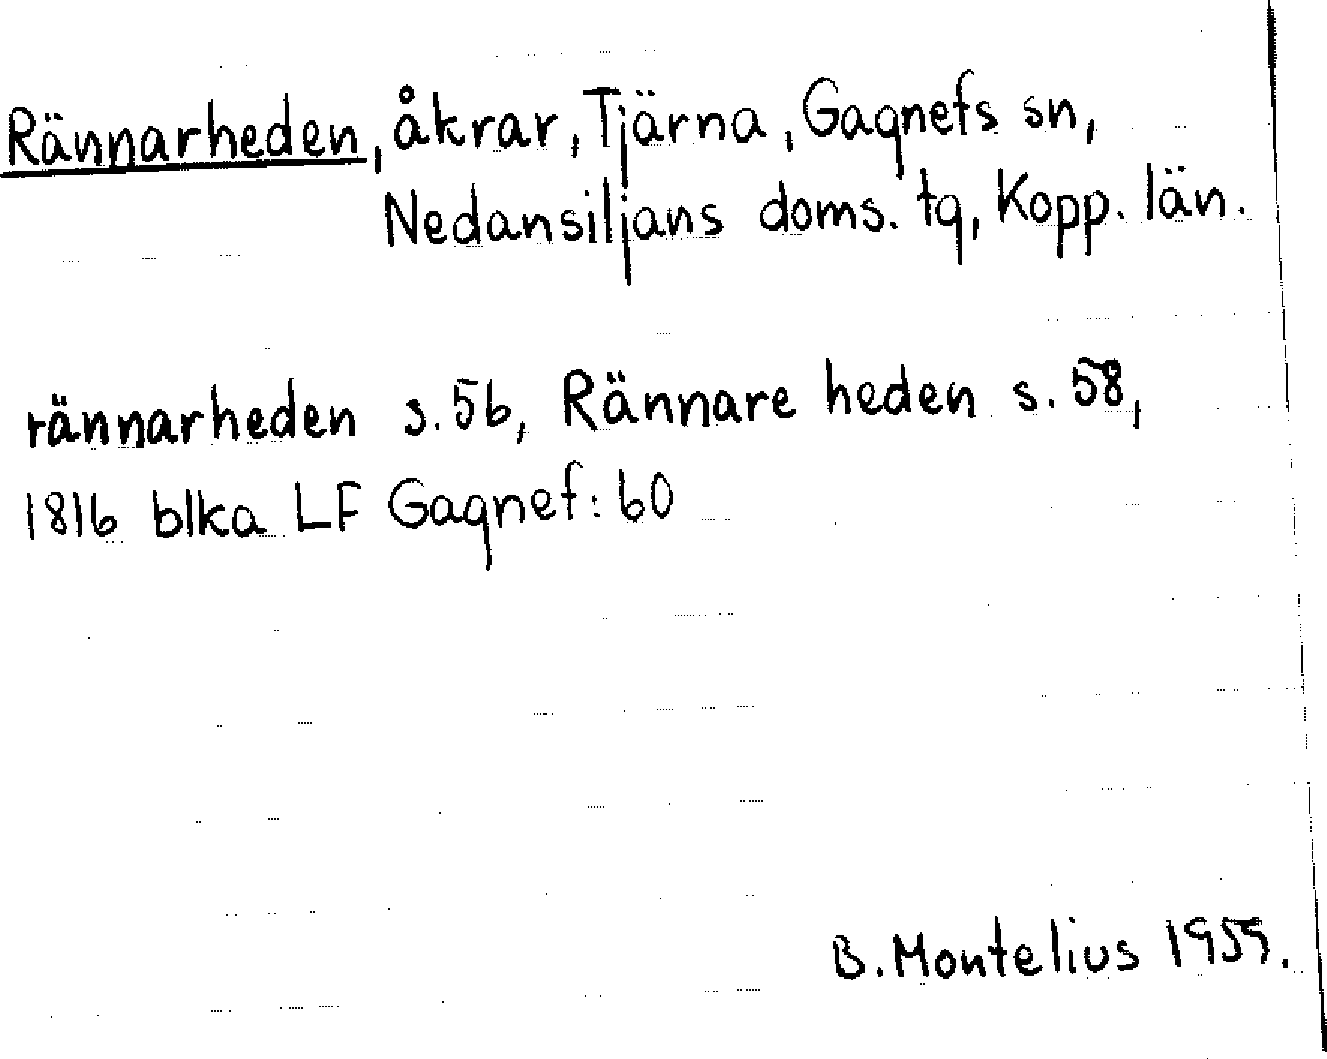 Rännarheden, åkrar, Tjärna, Gagnefs sn,
Nedansiljans doms. tg, Kopp. län.
rännarheden s.56, Rännare heden s.58,
1816 blka LF Gagnef:60
B.Montelius 1959.